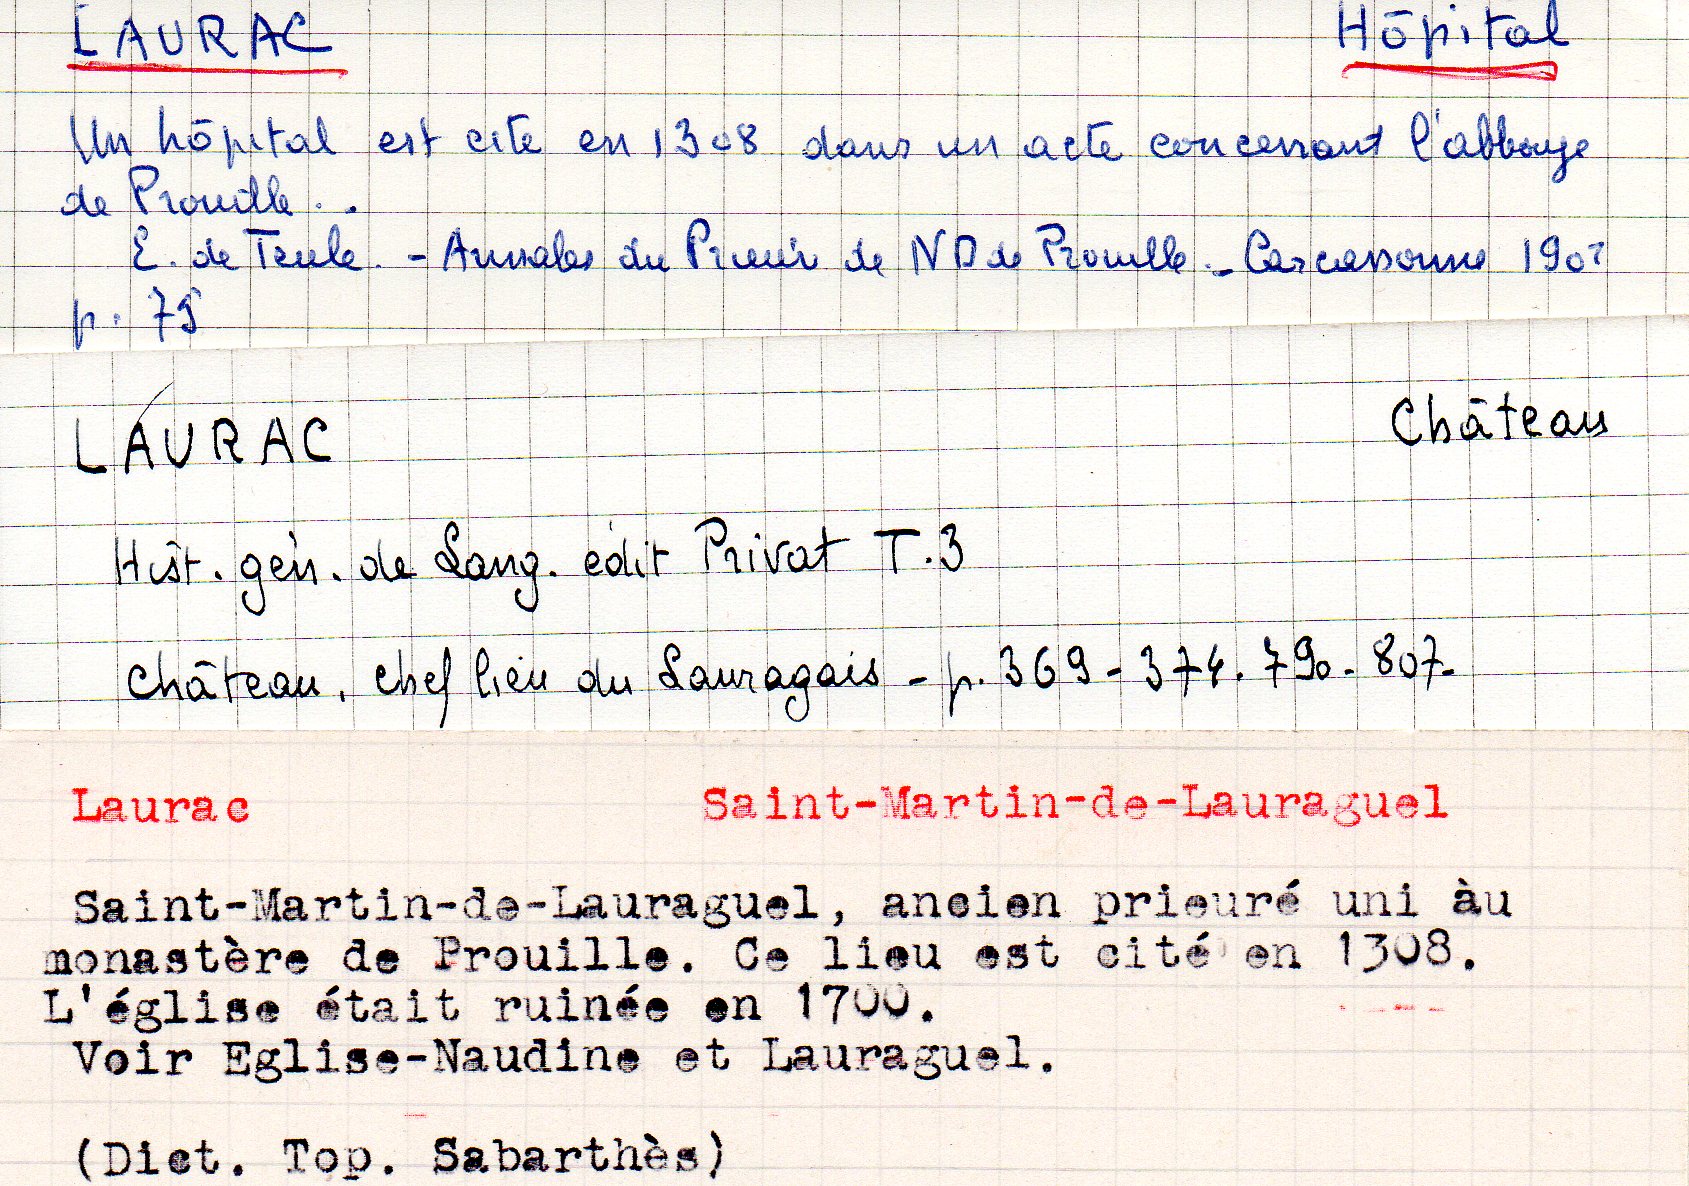 LAURAC Hôpital
Un hôpital est cité en 1308 dans un acte concernant l'abbaye
de Prouille..
E. de Teule. - Annales du Prieuré de ND de Prouille - Carcassonne 190
p. 75
LAURAC Château
Hist. gén. de Lang. édit Privat T.3
Château, chef lieu du Lauragais - p. 369 - 374. 790 - 807-
Laurac Saint-Martin-de-Lauraguel
Saint-Martin-de-Lauraguel, ancien prieuré uni àu
monastère de Prouille. Ce lieu est cité en 1308.
L'église était ruinée en 1700.
Voir Eglise-Naudine et Lauraguel.
(Dict. Top. Sabarthès)